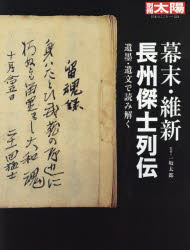 別冊
太陽
幕末・維新
長州傑士列伝
遺墨・遺文で読み解く
一坂太郎
留魂録
身ハたとひ武蔵の野辺に
朽ぬとも留置まし大和魂
十月念五日
二十一回猛士